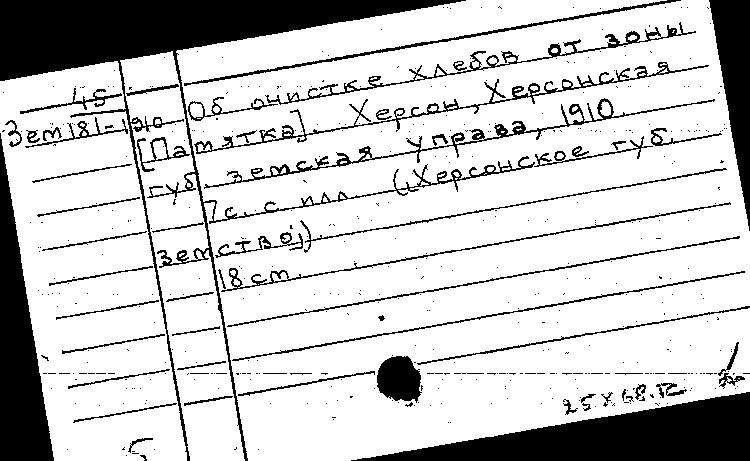 45
Зем 181-1910
Об очистке хлебов от зоны
[Памятка]. Херсон, Херсонская
губ. земская управа, 1910.
7 с. с илл (Херсонское губ.
земство).
18 см.
25 X 68.
5